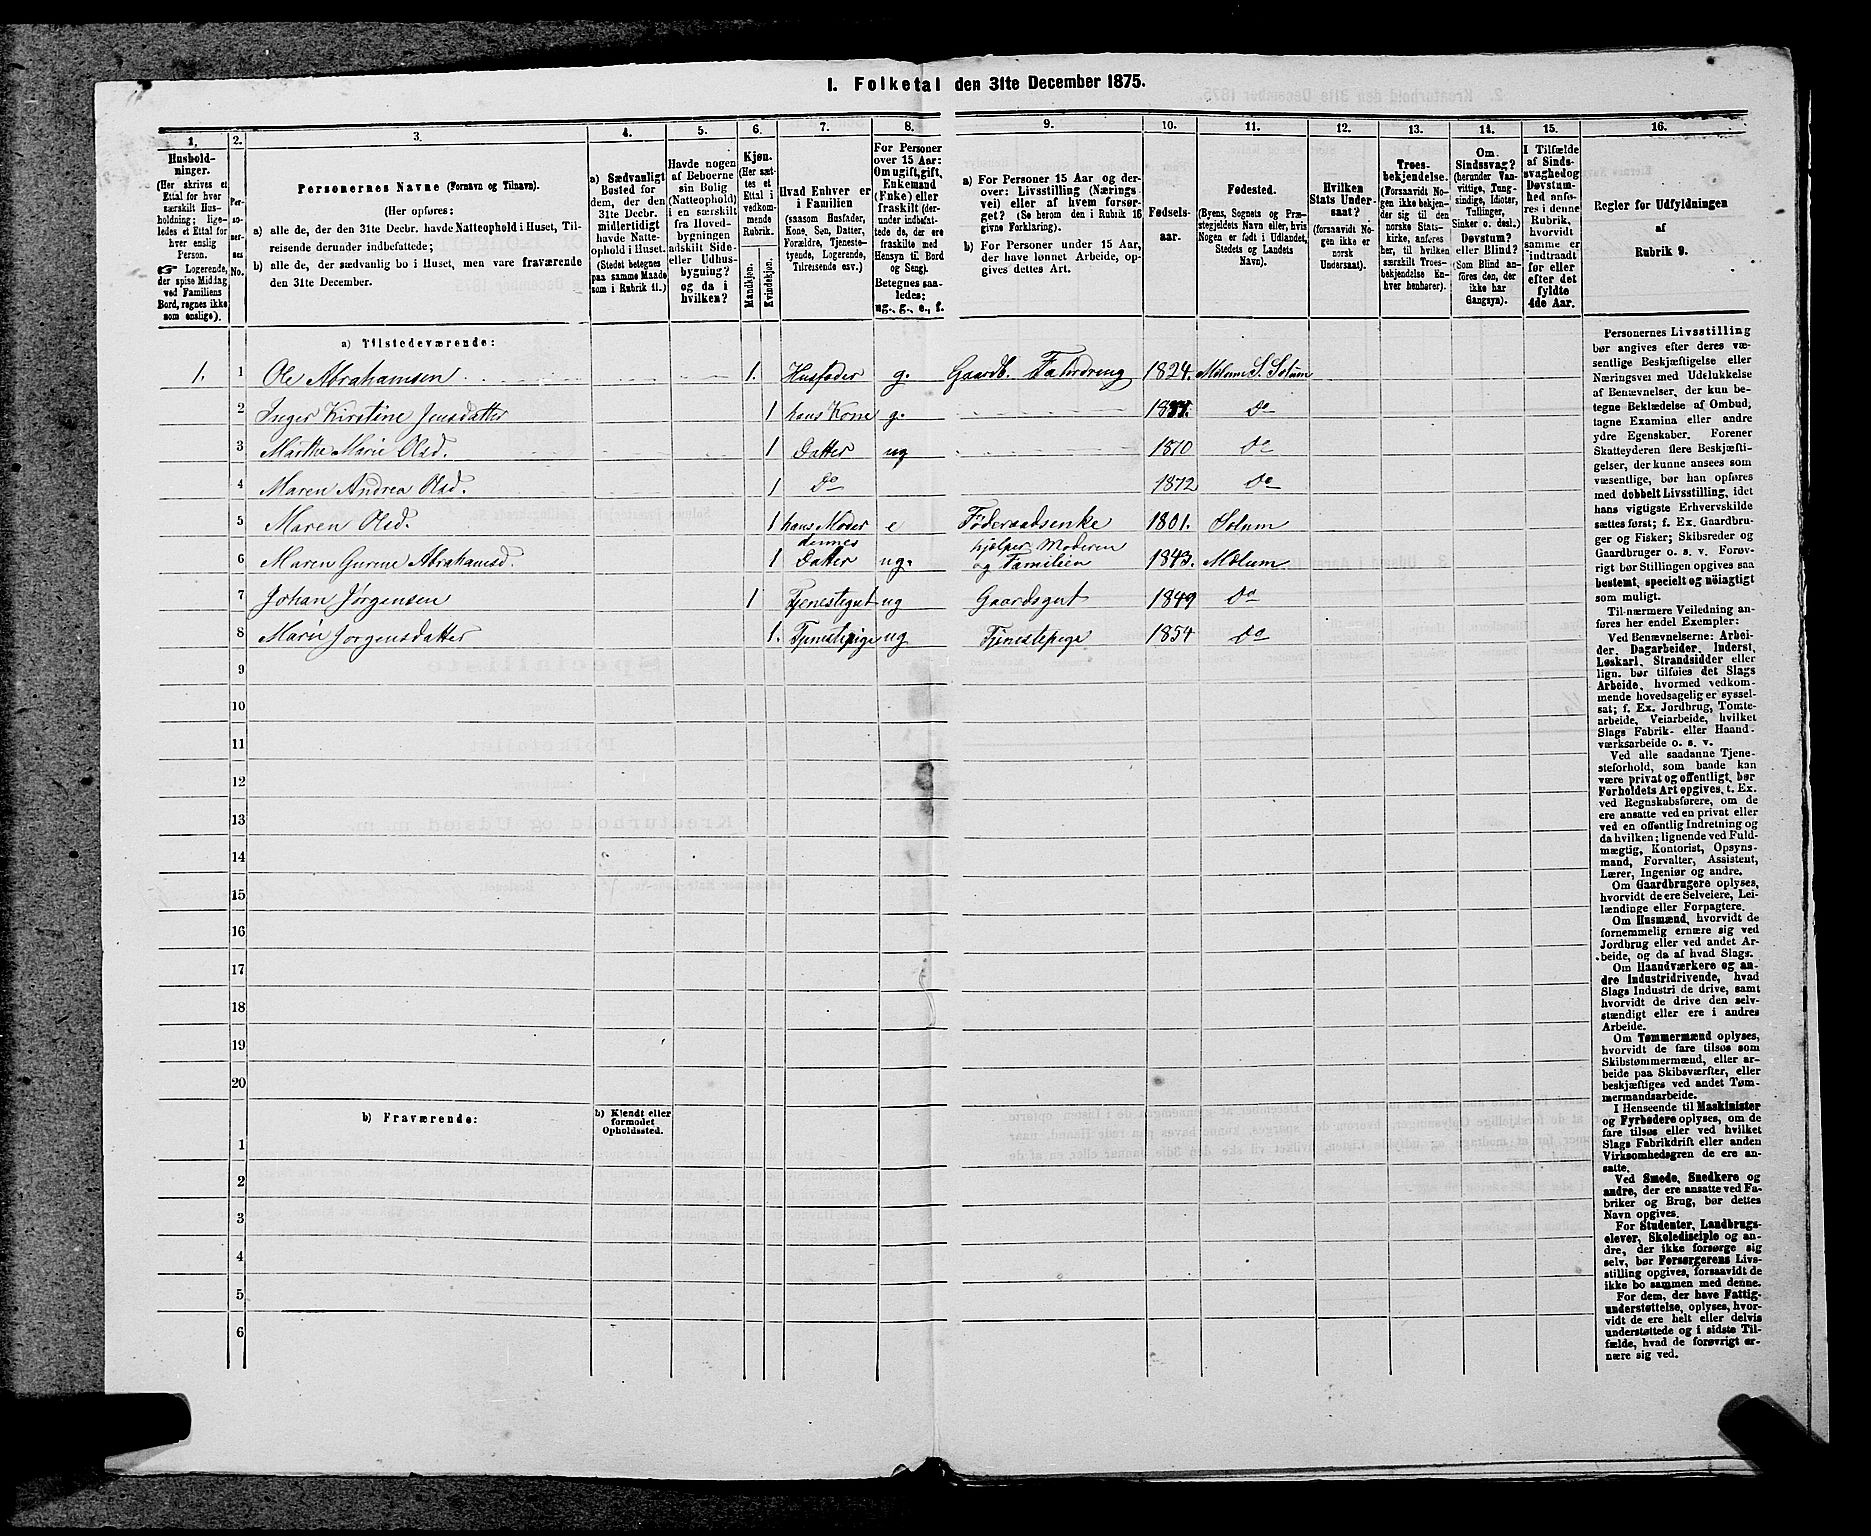 I. Folketal den 31te December 1875.
1. 2. 3. 4. 5. 6. 7. 8. 9. 10. 11. 12. 13. 14. 15. 16.
Hushold-
ninger.
(Her skrives et
Ettal for hver
særskilt Hus-
holdning; lige-
ledes et Ettal for
hver enslig
Person.
☞ Logerende,
der spise Middag
ved Familiens
Bord, regnes ikke
som enslige).
Per-
so-
ner-
nes
No.
Personernes Navne (Fornavn og Tilnavn).
(Her opføres:
a) alle de, der den 31te Decbr. havde Natteophold i Huset, Til-
reisende derunder indbefattede;
b) alle de, der sædvanlig bo i Huset, men vare fraværende
den 31te December.
a) Sædvanligt
Bosted for
dem, der den
31te Decbr.
midlertidigt
havde Natte-
ophold i Huset.
(Stedet betegnes
paa samme Maade
som i Rubrik 11.)
Havde nogen
af Beboerne
sin Bolig
(Natteophold)
i en særskilt
fra Hoved-
bygningen
adskilt Side-
eller Udhus-
bygning?
og da i
hvilken?
Kjøn.
(Her sæt-
tes et
Ettal i
vedkom-
mende
Rubrik.
Mandkjøn.
Kvindekjøn.
Hvad Enhver er
i Familien
(saasom Husfader,
Kone, Søn, Datter,
Forældre, Tjeneste-
tyende, Logerende,
Tilreisende osv.)
For Personer
over 15 Aar:
Om ugift, gift,
Enkemand
(Enke) eller
fraskilt (der-
under indbefat-
tede de, der ere
fraskilte med
Hensyn til Bord
og Seng).
Betegnes saa-
ledes:
ug., g., e., f.
a) For Personer 15 Aar og der-
over: Livsstilling (Nærings-
vei) eller af hvem forsør-
get? (Se herom den i Rubrik 16
givne Forklaring).
b) For Personer under 15 Aar,
der have lønnet Arbeide, op-
gives dettes Art.
Fødsels-
aar.
Fødested.
(Byens, Sognets og Præ-
stegjeldets Navn eller, hvis
Nogen er født i Udlandet,
Stedets og Landets
Navn).
Hvilken
Stats Under-
saat?
(forsaavidt No-
gen ikke er
norsk
Undersaat).
Troes-
bekjendelse.
(Forsaavidt No-
gen ikke bekjen-
der sig til den
norske Stats-
kirke, anføres
her, til hvilken
særskilt Troes-
bekjendelse En-
hver henhører).
Om
Sindssvag?
(herunder Van-
vittige, Tung-
sindige, Idioter,
Tullinger,
Sinker o. desl.).
Døvstum?
eller Blind?
(Som Blind an-
føres den, der
ikke har
Gangsyn).
I Tilfælde
af Sinds-
svaghed og
Døvstum-
hed anfø-
res i denne
Rubrik,
hvorvidt
samme er
indtraadt
før eller
efter det
fyldte
4de Aar.
Regler for Udfyldningen
af
Rubrik 9.
a) Tilstedeværende:
1. 1 Ole Abrahamsen 1. Husfader g. Gaardb. 1824. Mælum S. Solum
2 Inger Kirstine Jensdatter 1 hans Kone g. Do
3 Marthe Marie Olsd. 1 Datter ug 1870 Do
4 Maren Andrea Olsd. 1 Do 1872 Do
5 Maren Olsd. 1 hans Moder e Føderaadsenke 1801. Solum
6 Maren Gurine Abrahamsd. 1 dennes Datter ug. hjælper Moderen og Familien 1843. Mælum
7 Johan Jørgensen 1 Tjenestegut ug Gaardsgut 1849 Do
8 Marie Jørgensdatter 1. Tjenestepige ug Tjenestepige 1854 Do
9
10
11
12
13
14
15
16
17
18
19
20
b) Fraværende:
b) Kjendt eller
formodet
Opholdssted.
1
2
3
4
5
6
Personernes Livsstilling
bør angives efter deres væ-
sentlige Beskjæftigelse eller
Næringsvei med Udelukkelse
af Benævnelser, der kun be-
tegne Beklædelse af Ombud,
tagne Examina eller andre
ydre Egenskaber. Forener
Skatteyderen flere Beskjæfti-
gelser, der kunne ansees som
væsentlige, bør han opføres
med dobbelt Livsstilling, idet
hans vigtigste Erhvervskilde
sættes først; f. Ex. Gaardbru-
ger og Fisker; Skibsreder og
Gaardbruger o. s. v. Forøv-
rigt bør Stillingen opgives saa
bestemt, specielt og nøiagtigt
som muligt.
Til nærmere Veiledning an-
føres her endel Exempler:
Ved Benævnelserne: Arbei-
der, Dagarbeider, Inderst,
Løskarl, Strandsidder eller
lign. bør tilføies det Slags
Arbeide, hvormed vedkom-
mende hovedsagelig er syssel-
sat; f. Ex. Jordbrug, Tomte-
arbeide, Veiarbeide, hvilket
Slags Fabrik- eller Haand-
værksarbeide o. s. v.
Ved alle saadanne Tjene-
steforhold, som baade kan
være privat og offentligt, bør
Forholdets Art opgives, t. Ex.
ved Regnskabsførere, om de
ere ansatte ved en privat eller
ved en offentlig Indretning og
da hvilken; lignende ved Fuld-
mægtig, Kontorist, Opsyns-
mand, Forvalter, Assistent,
Lærer, Ingeniør og andre.
Om Gaardbrugere oplyses,
hvorvidt de ere Selveiere, Lei-
lændinge eller Forpagtere.
Om Husmænd, hvorvidt de
fornemmelig ernære sig ved
Jordbrug eller ved andet Ar-
beide, og da af hvad Slags.
Om Haandværkere og an-
dre Industridrivende, hvad
Slags Industri de drive, samt
hvorvidt de drive den selv-
stændigt eller ere i andres
Arbeide.
Om Tømmermænd oplyses,
hvorvidt de fare tilsøs som
Skibstømmermænd, eller ar-
beide paa Skibsværfter, eller
beskjæftiges ved andet Tøm-
mermandsarbeide.
I Henseende til Maskinister
og Fyrbødere oplyses, om de
fare tilsøs eller ved hvilket
Slags Fabrikdrift eller anden
Virksomhedsgren de ere an-
satte.
Ved Smede, Snedkere og
andre, der ere ansatte ved Fa-
briker og Brug, bør dettes
Navn opgives.
For Studenter, Landbrugs-
elever, Skoledisciple og an-
dre, der ikke forsørge sig
selv, bør Forsørgerens Livs-
stilling opgives, forsaavidt de
ikke bo sammen med denne.
For dem, der have Fattig-
understøttelse, oplyses, hvor-
vidt de ere helt eller delvis
understøttede og i sidste Til-
fælde, hvad de forøvrigt er-
nære sig ved.